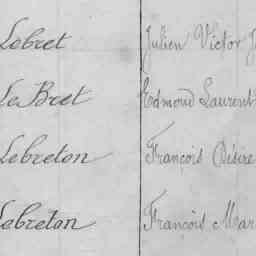 Lebret Julien Victor J
Le Bret Edmond Laurent
Lebreton François Désiré
Lebreton François Mar